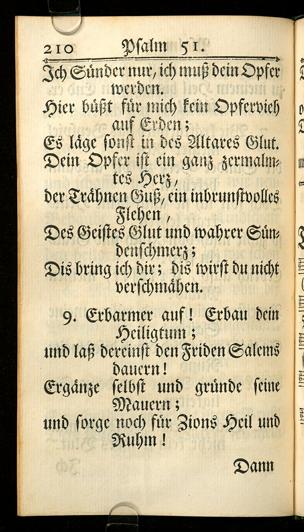 210 Psalm 51.
Ich Sünder nur, ich muß dein Opfer
werden.
Hier büßt für mich kein Opfervieh
auf Erden;
Es läge sonst in des Altares Glut.
Dein Opfer ist ein ganz zermalm-
tes Herz,
der Trähnen Guß, ein inbrunstvolles
Flehen,
Des Geistes Glut und wahrer Sün-
denschmerz;
Dis bring ich dir; dis wirst du nicht
verschmähen.
9. Erbarmer auf! Erbau dein
Heiligtum;
und laß dereinst den Friden Salems
dauern!
Ergänze selbst und gründe seine
Mauern;
und sorge noch für Zions Heil und
Ruhm!
Dann